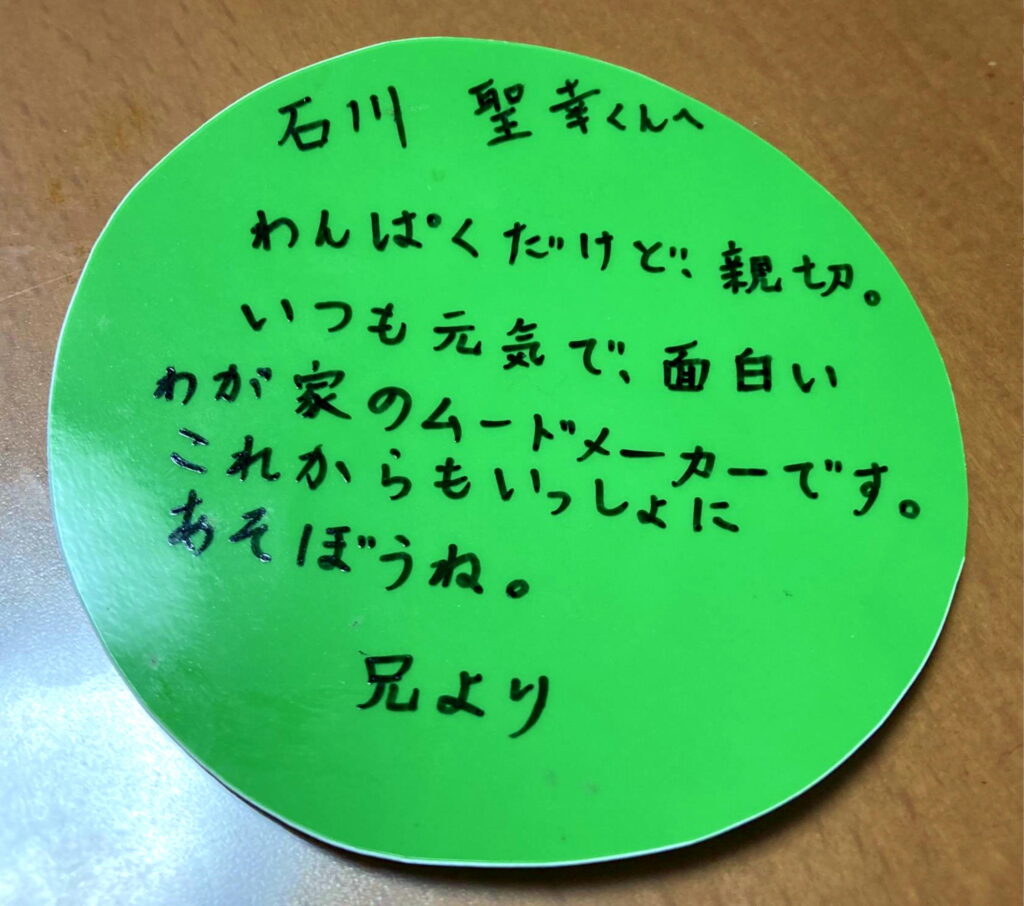 石川 聖幸くんへ
わんぱくだけど、親切。
いつも元気で、面白い
わが家のムードメーカーです。
これからもいっしょに
あそぼうね。
兄より